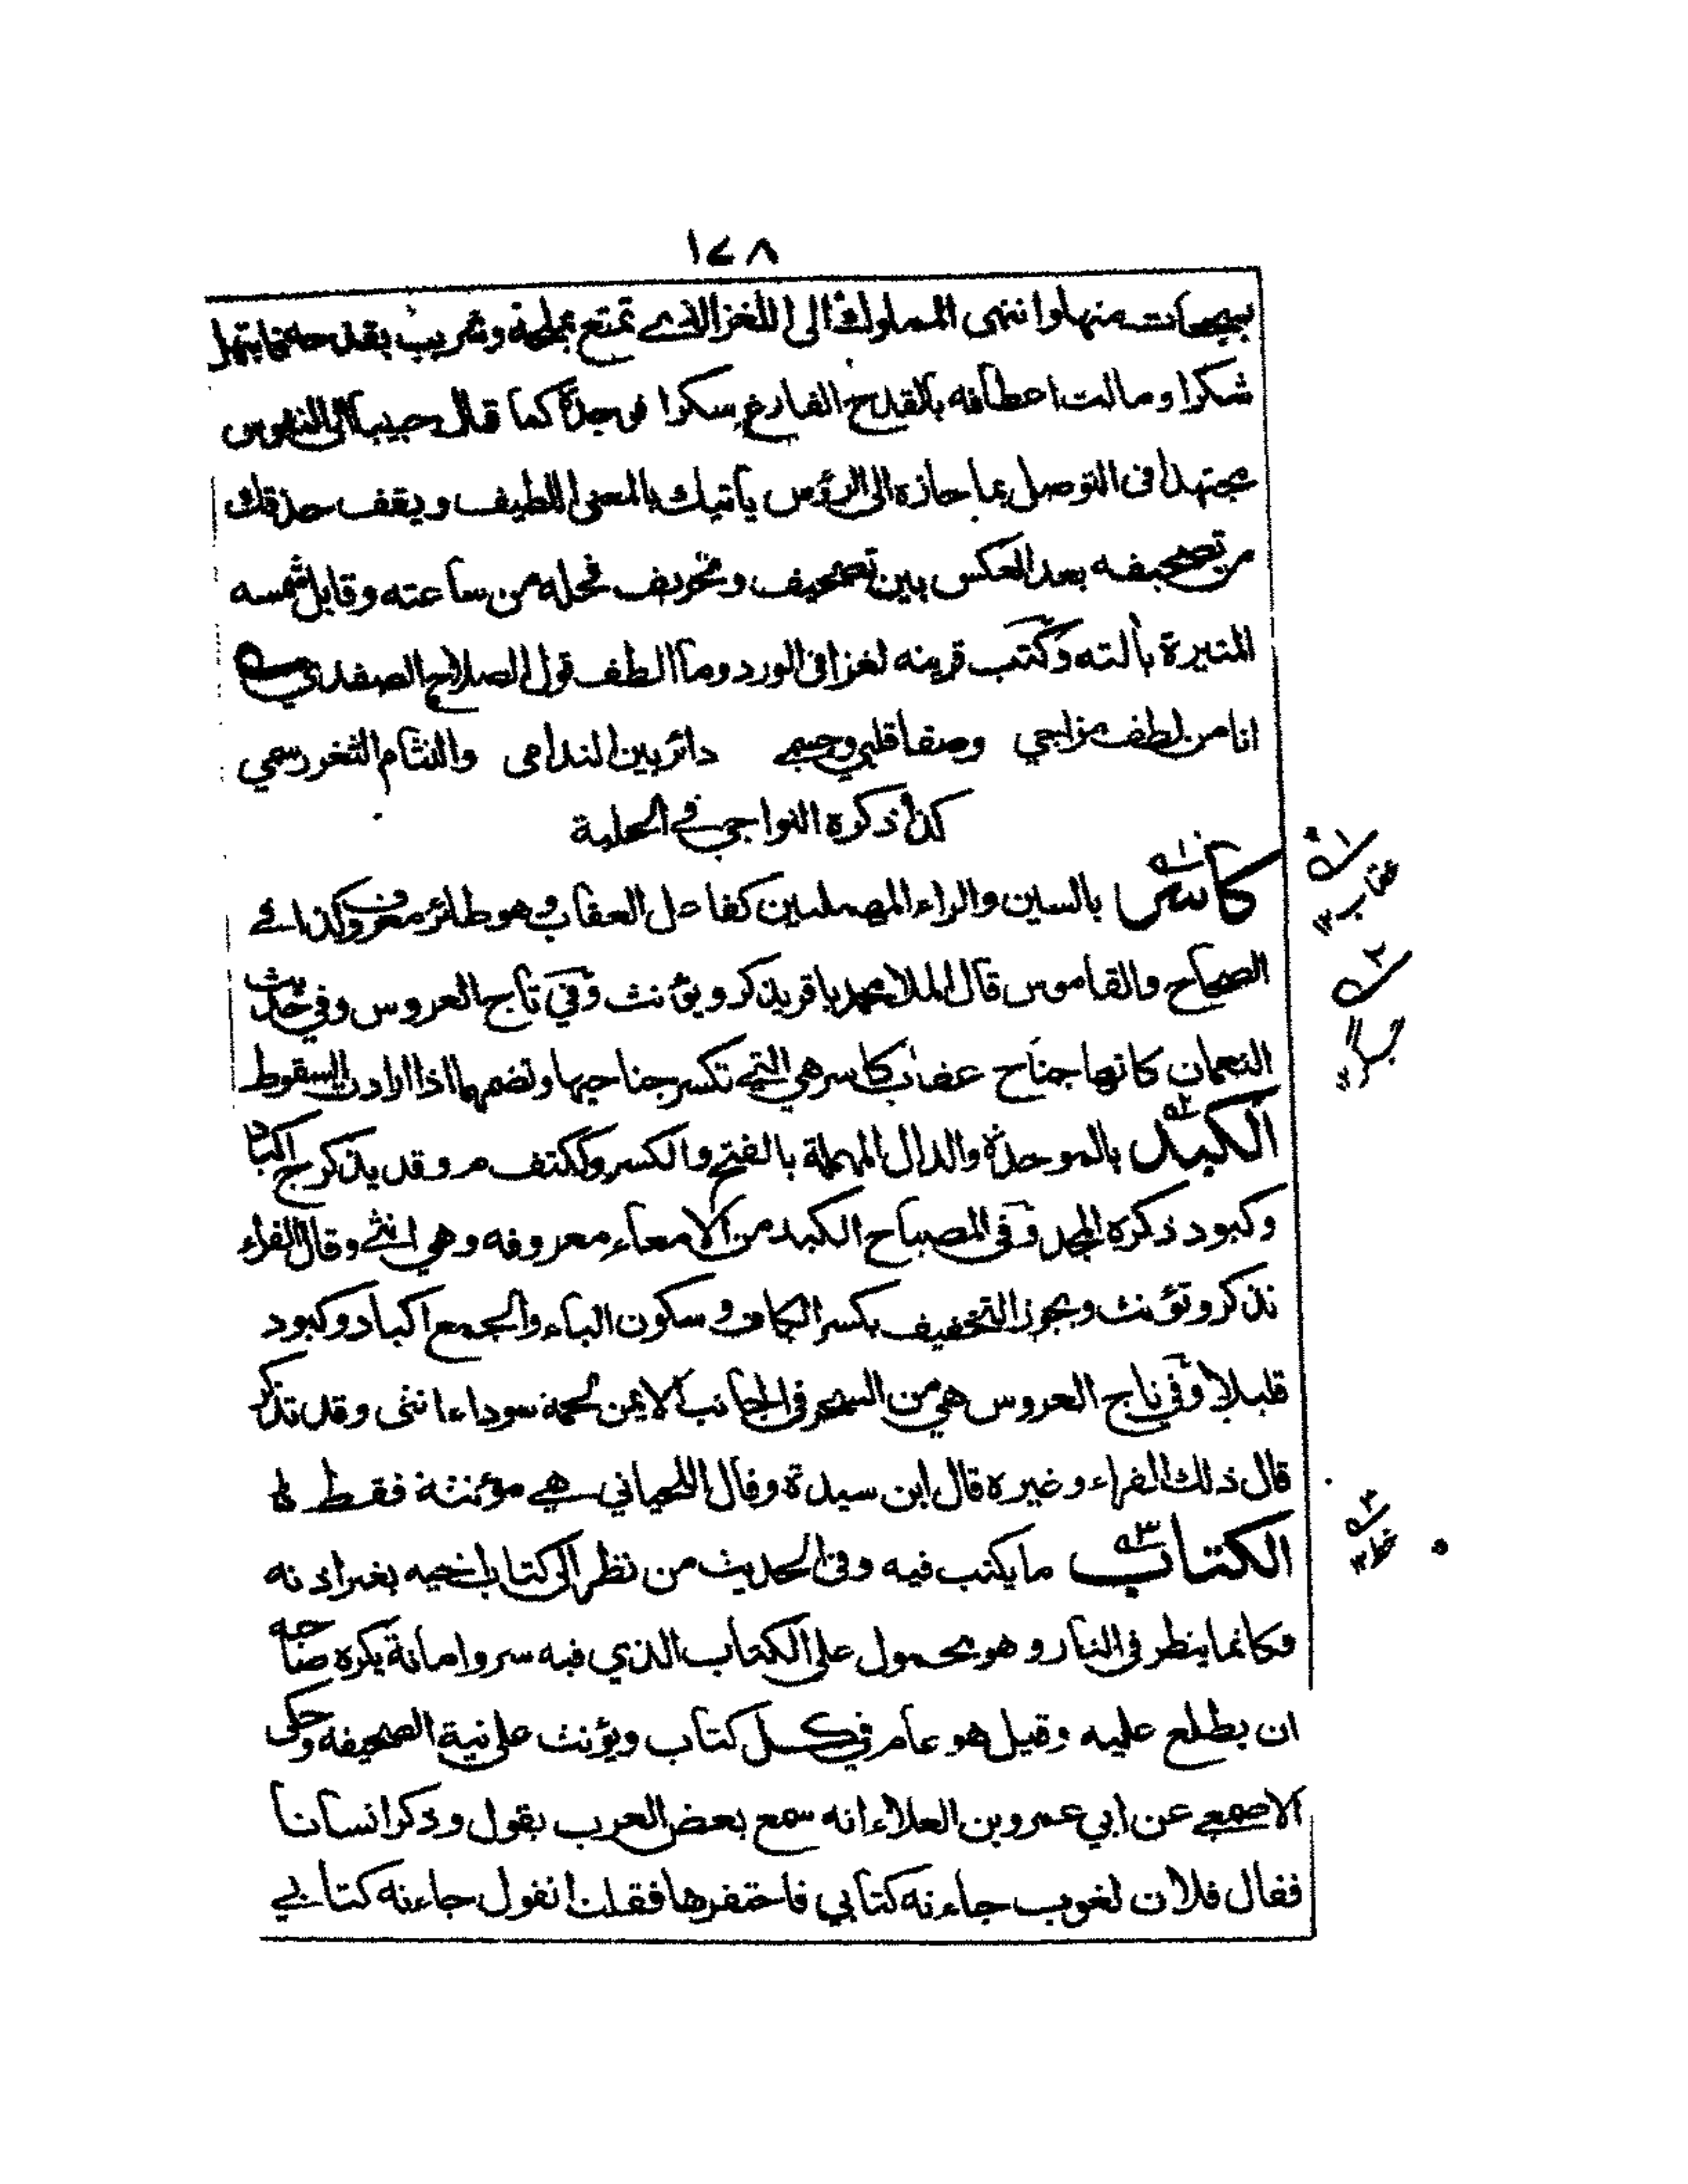 ١٤٨
منها وانتهى المملوك الى اللغز الذي تمتع
شكرا ومالت اعطافه بالقدح الفارغ سكرا فوجدته كما قال حبيبا الى النفوس
مجتهدا فى التوصل بما حازه الى الرؤس ياتيك بالمعنى اللطيف ويقف حذقك
من تصحيفه بعد العكس بين تصحيف وتحريف فحله من ساعته وقابل شمسه
المنيرة بالته وكتب قرينه لغزا فى الورد وما الطف قول الصلاح الصفدي
انا من لطف مزاجي وصفا قلبي وجسمي دائر بين الندامى والتثام الثغر رسمي
كذا ذكره النواجي في الحلبة
كاسر بالسين والراء المهملتين كفاعل العقاب وهو طائر معروف كذا في
الصحاح والقاموس قال الملا محمد باقر يذكر ويؤنث وفي تاج العروس وفي حديث
النعمان كانها جناح عقاب كاسر هي التي تكسر جناحيها وتضمهما اذا ارادت السقوط
الكبد بالموحدة والدال المهملة بالفتح والكسر وككتف م وقد يذكر ج اكباد
وكبود ذكره المجد وفى المصباح الكبد من الامعاء معروفه وهي انثى وقال الفراء
تذكر وتؤنث ويجوز التخفيف بكسر الكاف وسكون الباء والجمع اكباد وكبود
قليلا وفي تاج العروس هي من السحر فى الجانب الايمن لحمة سوداء انثى وقد تذكر
قال ذلك الفراء وغيره قال ابن سيدة وقال اللحياني هي مؤنثة فقط
الكتاب ما يكتب فيه وفى الحديث من نظر الى كتاب اخيه بغير اذنه
فكانما ينظر فى النار وهو محمول على الكتاب الذي فيه سر وامانة يكره صاحبه
ان يطلع عليه وقيل هو عام في كل كتاب ويؤنث على نية الصحيفه وحكى
الاصمعي عن ابي عمرو بن العلاء انه سمع بعض العرب يقول وذكر انسانا
فقال فلان لغوب جاءته كتابي فاحتقرها فقلت اتقول جاءته كتابي
١
عقاب ١٢
٢
جگر ١٢
٣
خط ١٢